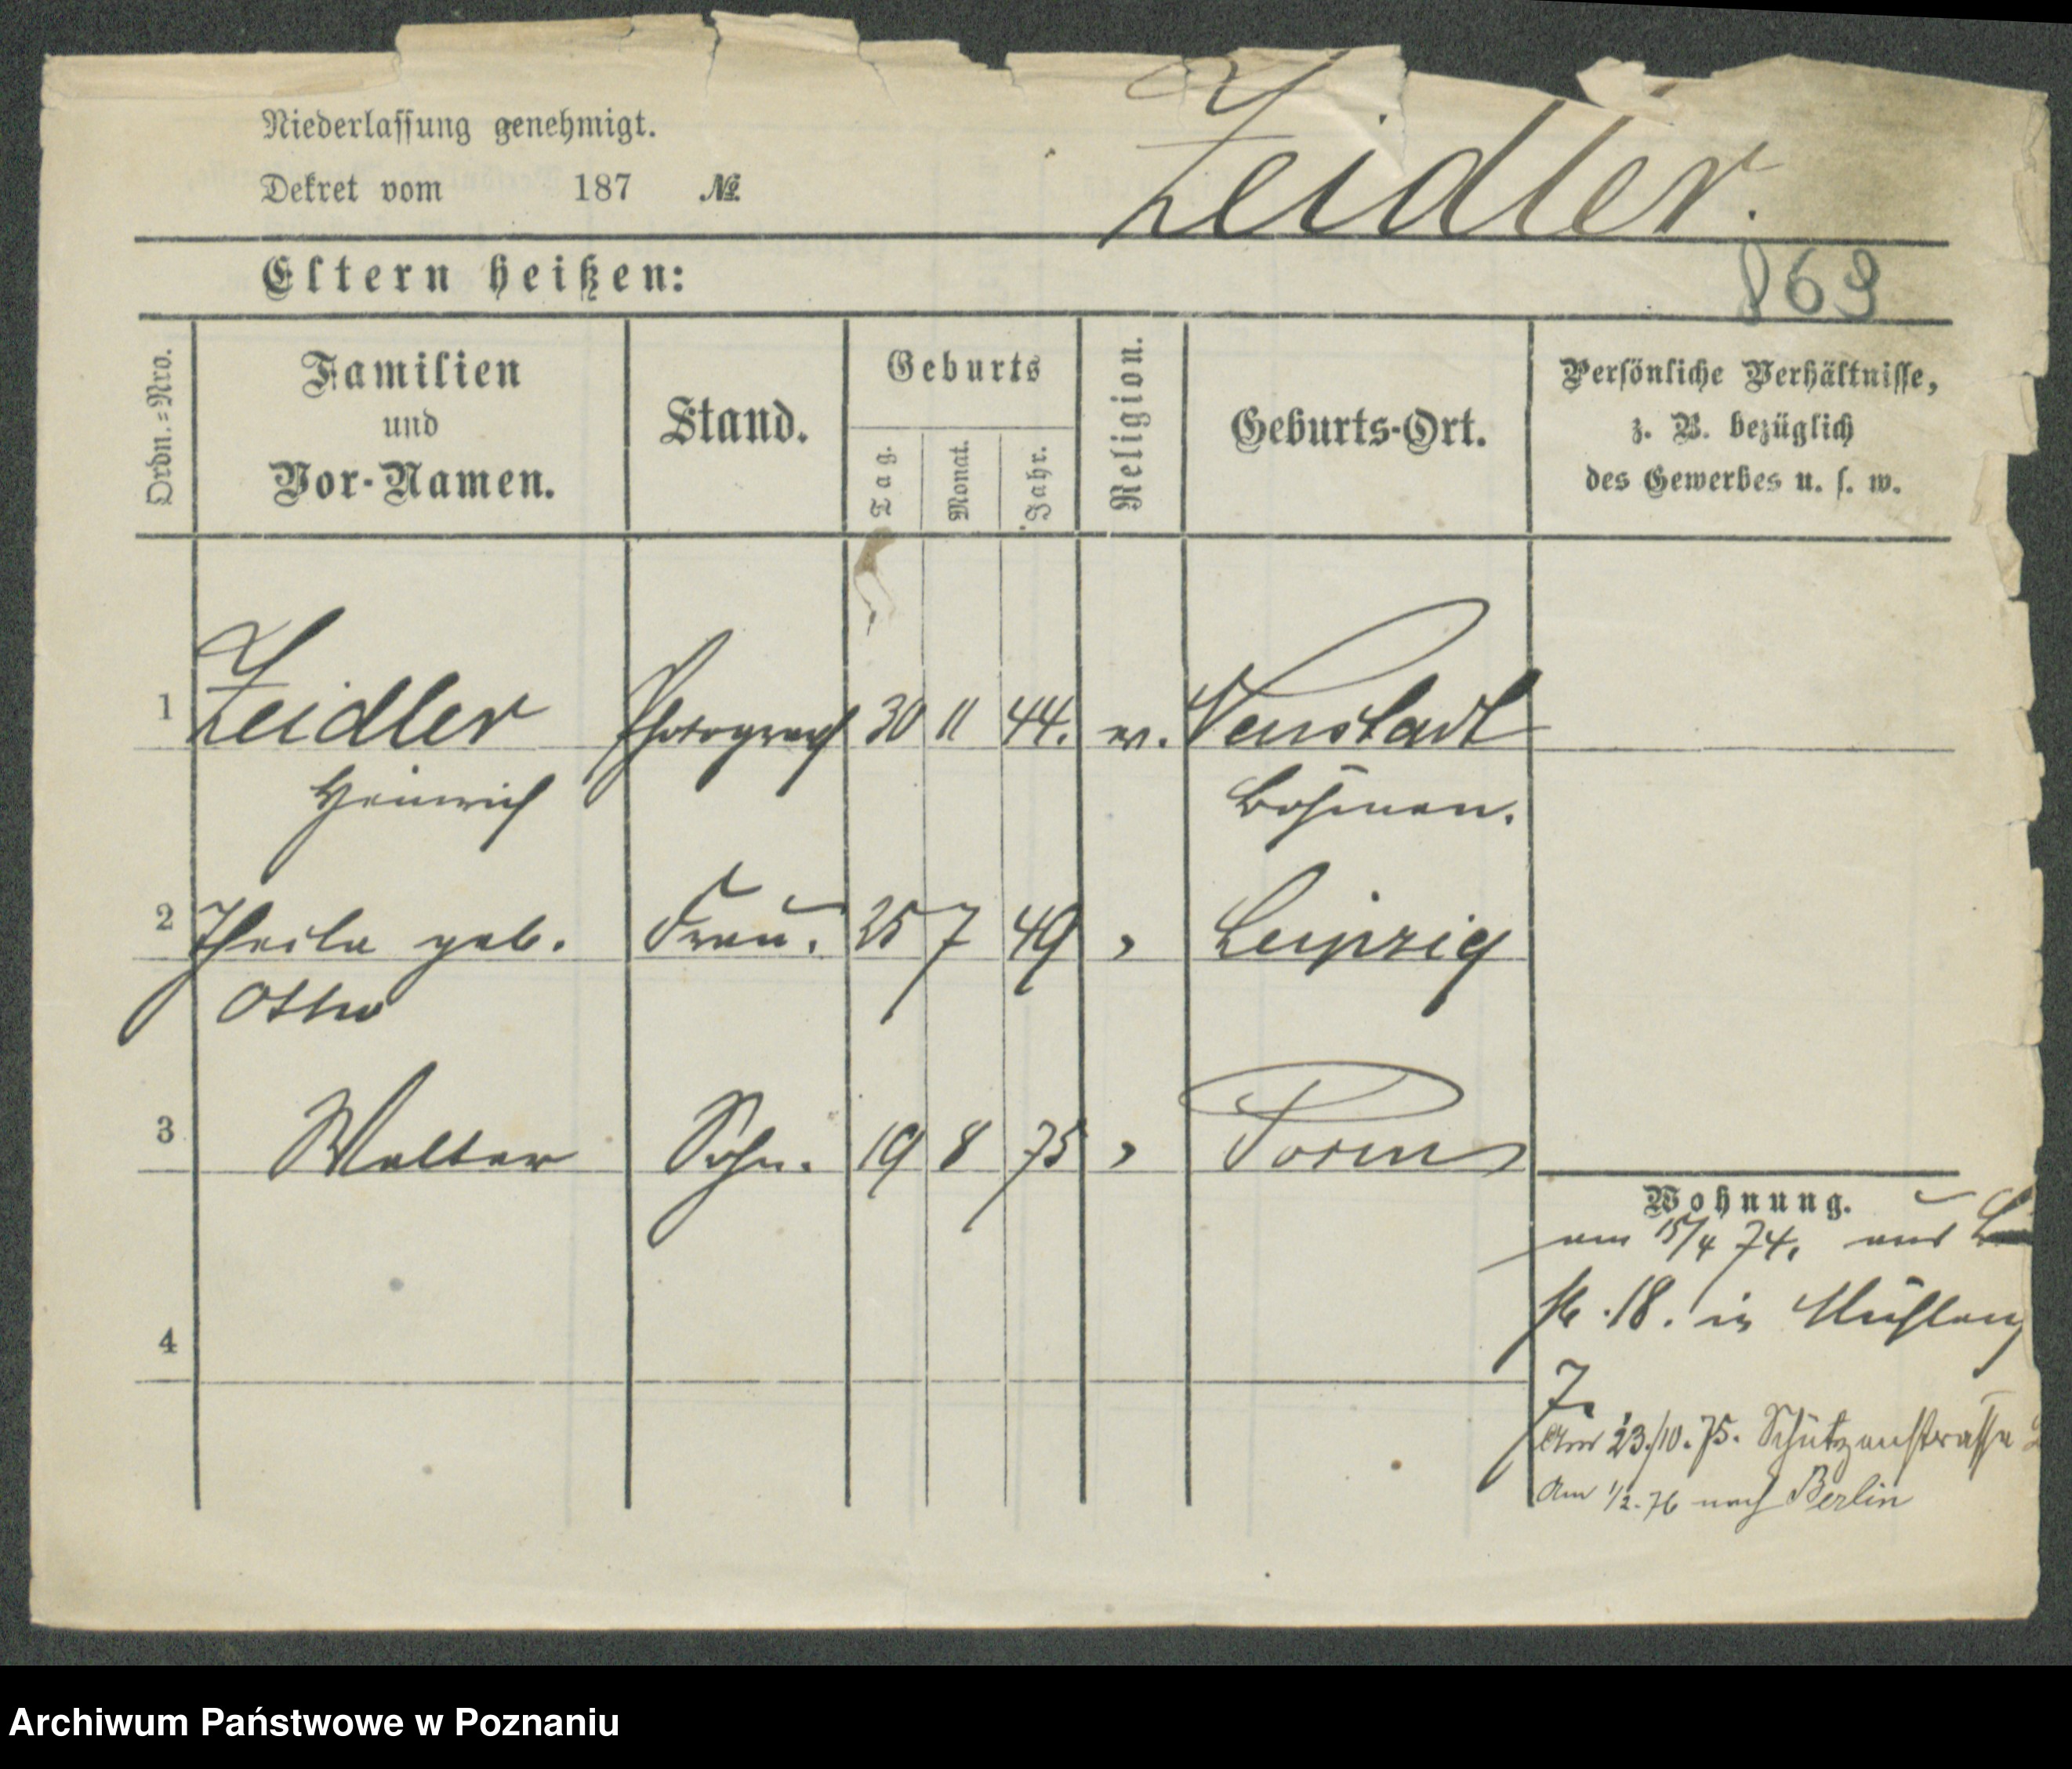 Niederlassung genehmigt.
Dekret vom 187 №
Zeidler.
Eltern heißen:
869
Ordn.=Nro.
Familien
und
Vor-Namen.
Stand.
Geburts
Tag.
Monat.
Jahr.
Religion.
Geburts-Ort.
Persönliche Verhältnisse,
z. B. bezüglich
des Gewerbes u. s. w.
1 Zeidler Photograph 30 11 44. ev. Neustadt
Heinrich Böhmen.
2 Thecla geb. Frau. 25 7 49 " Leipzig
Otto
3 Walter Sohn. 19 8 75 " Posen
Wohnung.
am 15/4 74. aus
18. in Mühlen
7.
Am 23./10. 75. Schützenstrasse
Am 1/2. 76 nach Berlin
4
Archiwum Państwowe w Poznaniu